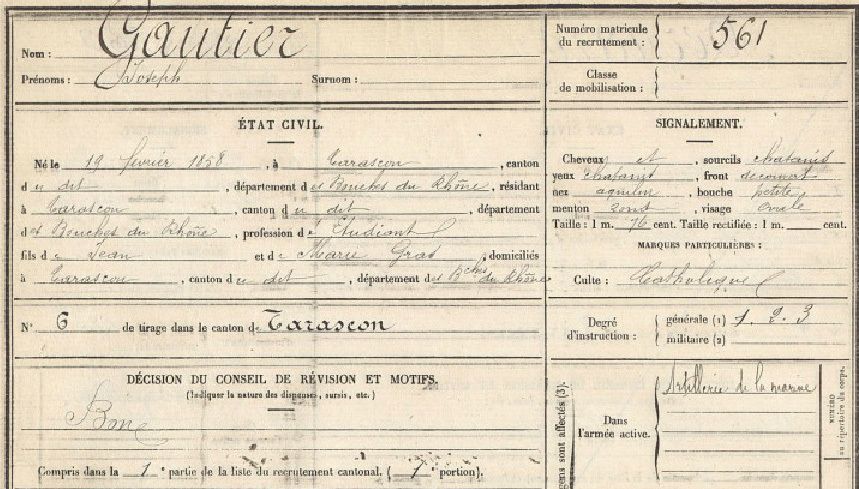 Nom : Gautier
Prénoms : Joseph Surnom :
Numéro matricule du recrutement : 561
Classe de mobilisation :
ÉTAT CIVIL.
Né le 19 février 1858, à Tarascon, canton
du dit, département des Bouches du Rhône, résidant
à Tarascon, canton du dit, département
des Bouches du Rhône, profession d'Etudiant
fils de Jean et de Marie Gras, domiciliés
à Tarascon, canton du dit, département des Bches du Rhône
SIGNALEMENT.
Cheveux et, sourcils chatains
yeux chatains, front découvert
nez aquilin, bouche petite
menton rond, visage ovale
Taille : 1 m. 76 cent. Taille rectifiée : 1 m. cent.
MARQUES PARTICULIÈRES :
Culte : Catholique
N° 6 de tirage dans le canton de Tarascon
Degré d'instruction : générale (1) 1.2.3
militaire (2)
DÉCISION DU CONSEIL DE RÉVISION ET MOTIFS.
(Indiquer la nature des dispenses, sursis, etc.)
Bon
Compris dans la 1e partie de la liste du recrutement cantonal. (1e portion).
gens sont affectés (3).
Dans l'armée active.
Artillerie de la marine
NUMÉRO
au répertoire du corps.